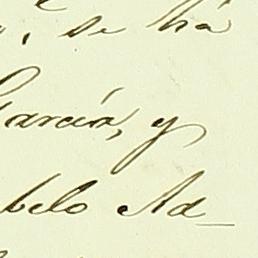 , se há
García, y
belo Ad_